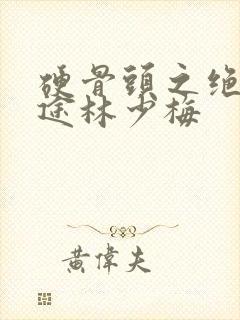 硬骨頭之绝
途林少梅
黃偉夫